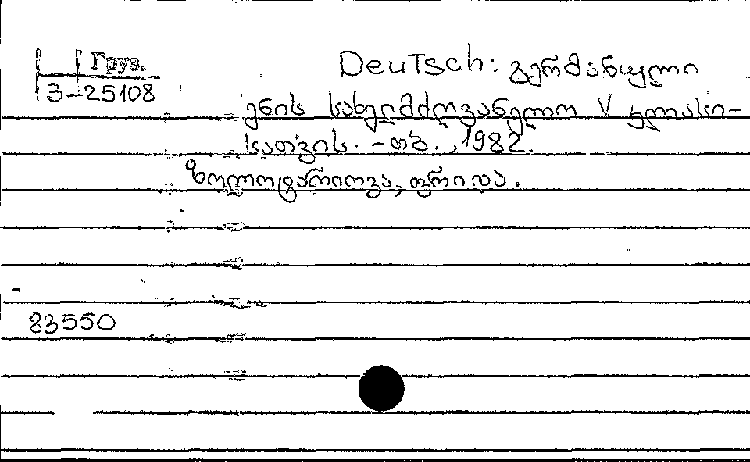 Груз.
3-25108
Deutsch: გერმანული
ენის სახელმძღვანელო V კლასი-
სათვის. - თბ., 1982.
ზოლოტარიოვა, ფრიდა.
83550